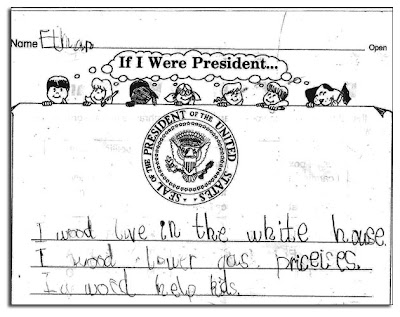 Name Ethan
Open
If I Were President...
SEAL OF THE PRESIDENT OF THE UNITED STATES
I wood live in the white house.
I wood lower gas priceises.
I wood help kids.